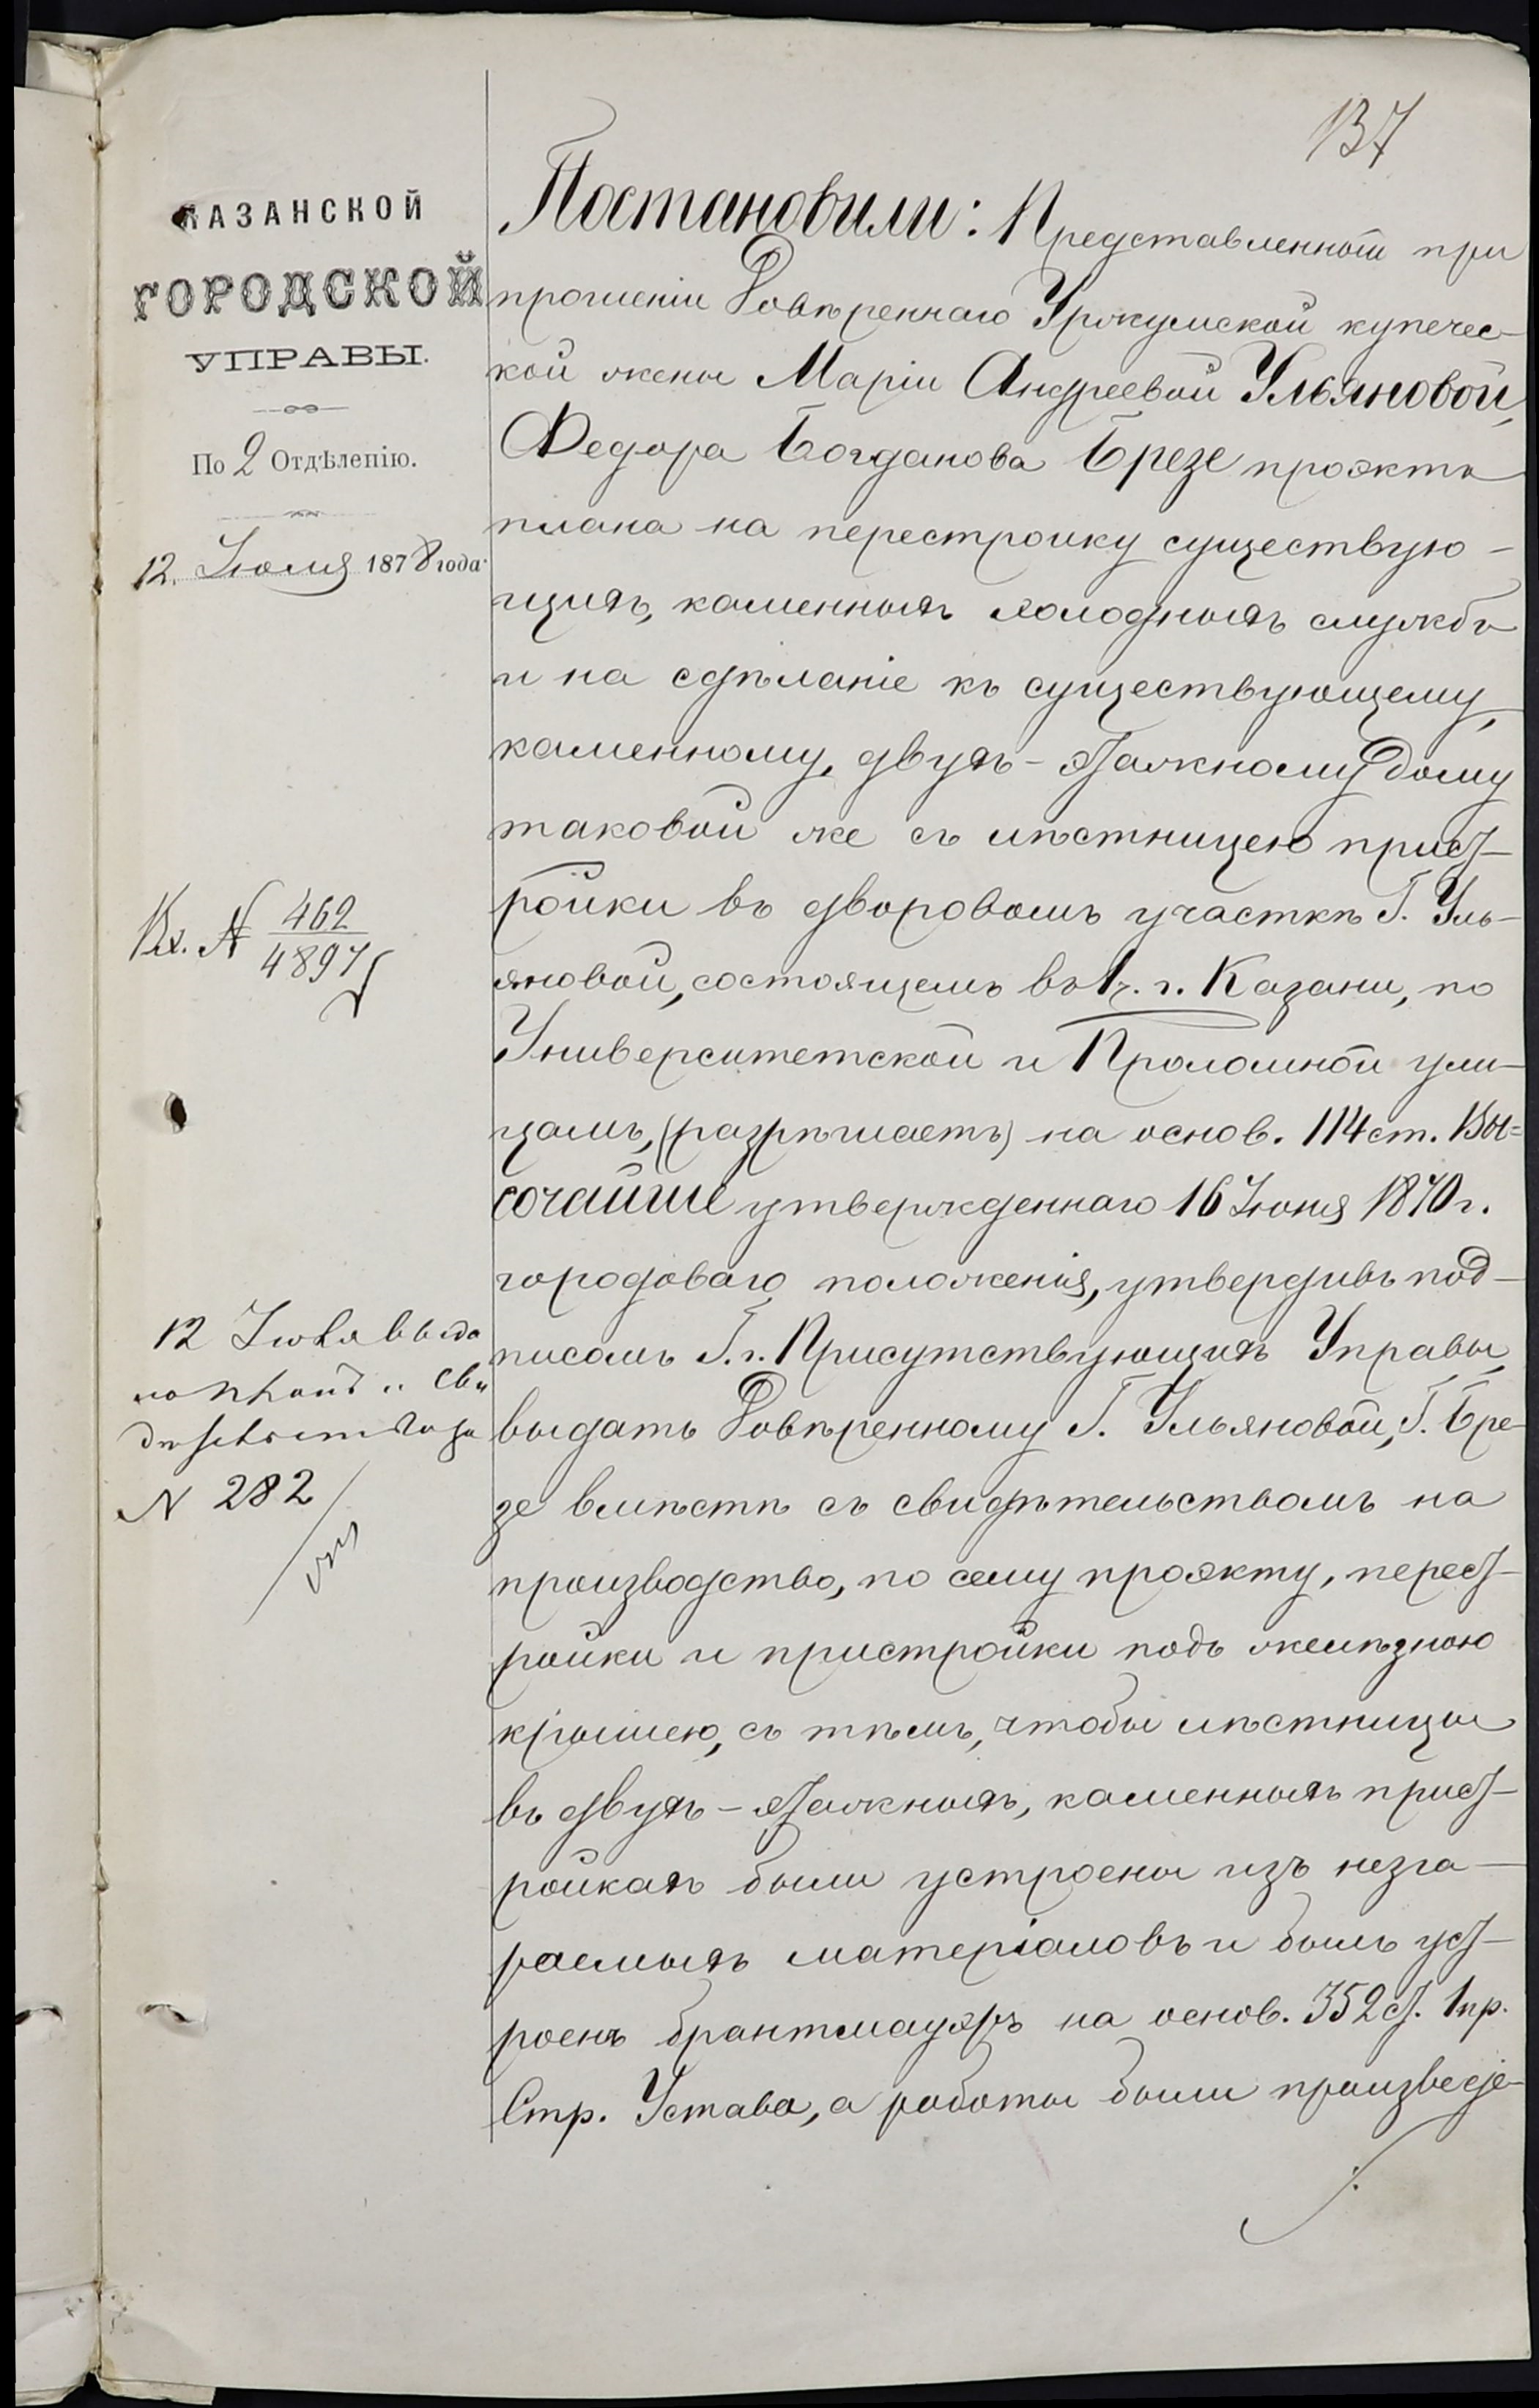 137
КАЗАНСКОЙ
ГОРОДСКОЙ
УПРАВЫ.
По 2 Отдѣленію.
12. Іюля 1878 года.
Вх. № 462
4897
12 Іюля выда
но планъ и сви
дѣтельство за
№ 282
Постановили: Представленной при
прошеніи Довѣреннаго Уржумской купечес-
кой жены Маріи Андреевой Ульяновой,
Федора Богданова Брезе проэктъ
плана на перестройку существую-
щихъ, каменныхъ холодныхъ службъ
и на сдѣланіе къ существующему,
каменному, двухъ-этажному дому
таковой же съ лѣстницею прист-
ройки въ дворовомъ участкѣ Г. Уль-
яновой, состоящемъ въ 1 ч. г. Казани, по
Университетской и Проломной ули-
цамъ, (разрѣшаетъ) на основ. 114 ст. Вы=
сочайше утвержденнаго 16 Іюня 1870 г.
городоваго положенія, утвердивъ под-
писомъ Г.г. Присутствующихъ Управы,
выдать Довѣренному Г. Ульяновой, Г. Бре-
зе вмѣстѣ съ свидѣтельствомъ на
производство, по сему проэкту, перест-
ройки и пристройки подъ желѣзною
крышею, съ тѣмъ, чтобы лѣстницы
въ двухъ-этажныхъ, каменныхъ прист-
ройкахъ были устроены изъ незга-
раемыхъ матеріаловъ и былъ уст-
роенъ брантмауэръ на основ. 352 ст. 1 пр.
Стр. Устава, а работы были произведе-